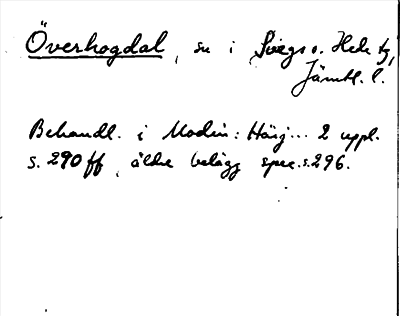 Överhogdal, su i Svegs o. Hede tg,
Jämtl. l.
Behandl. i Modin: Härj... 2 uppl.
s. 290 ff, äldre belägg spec. s. 296.